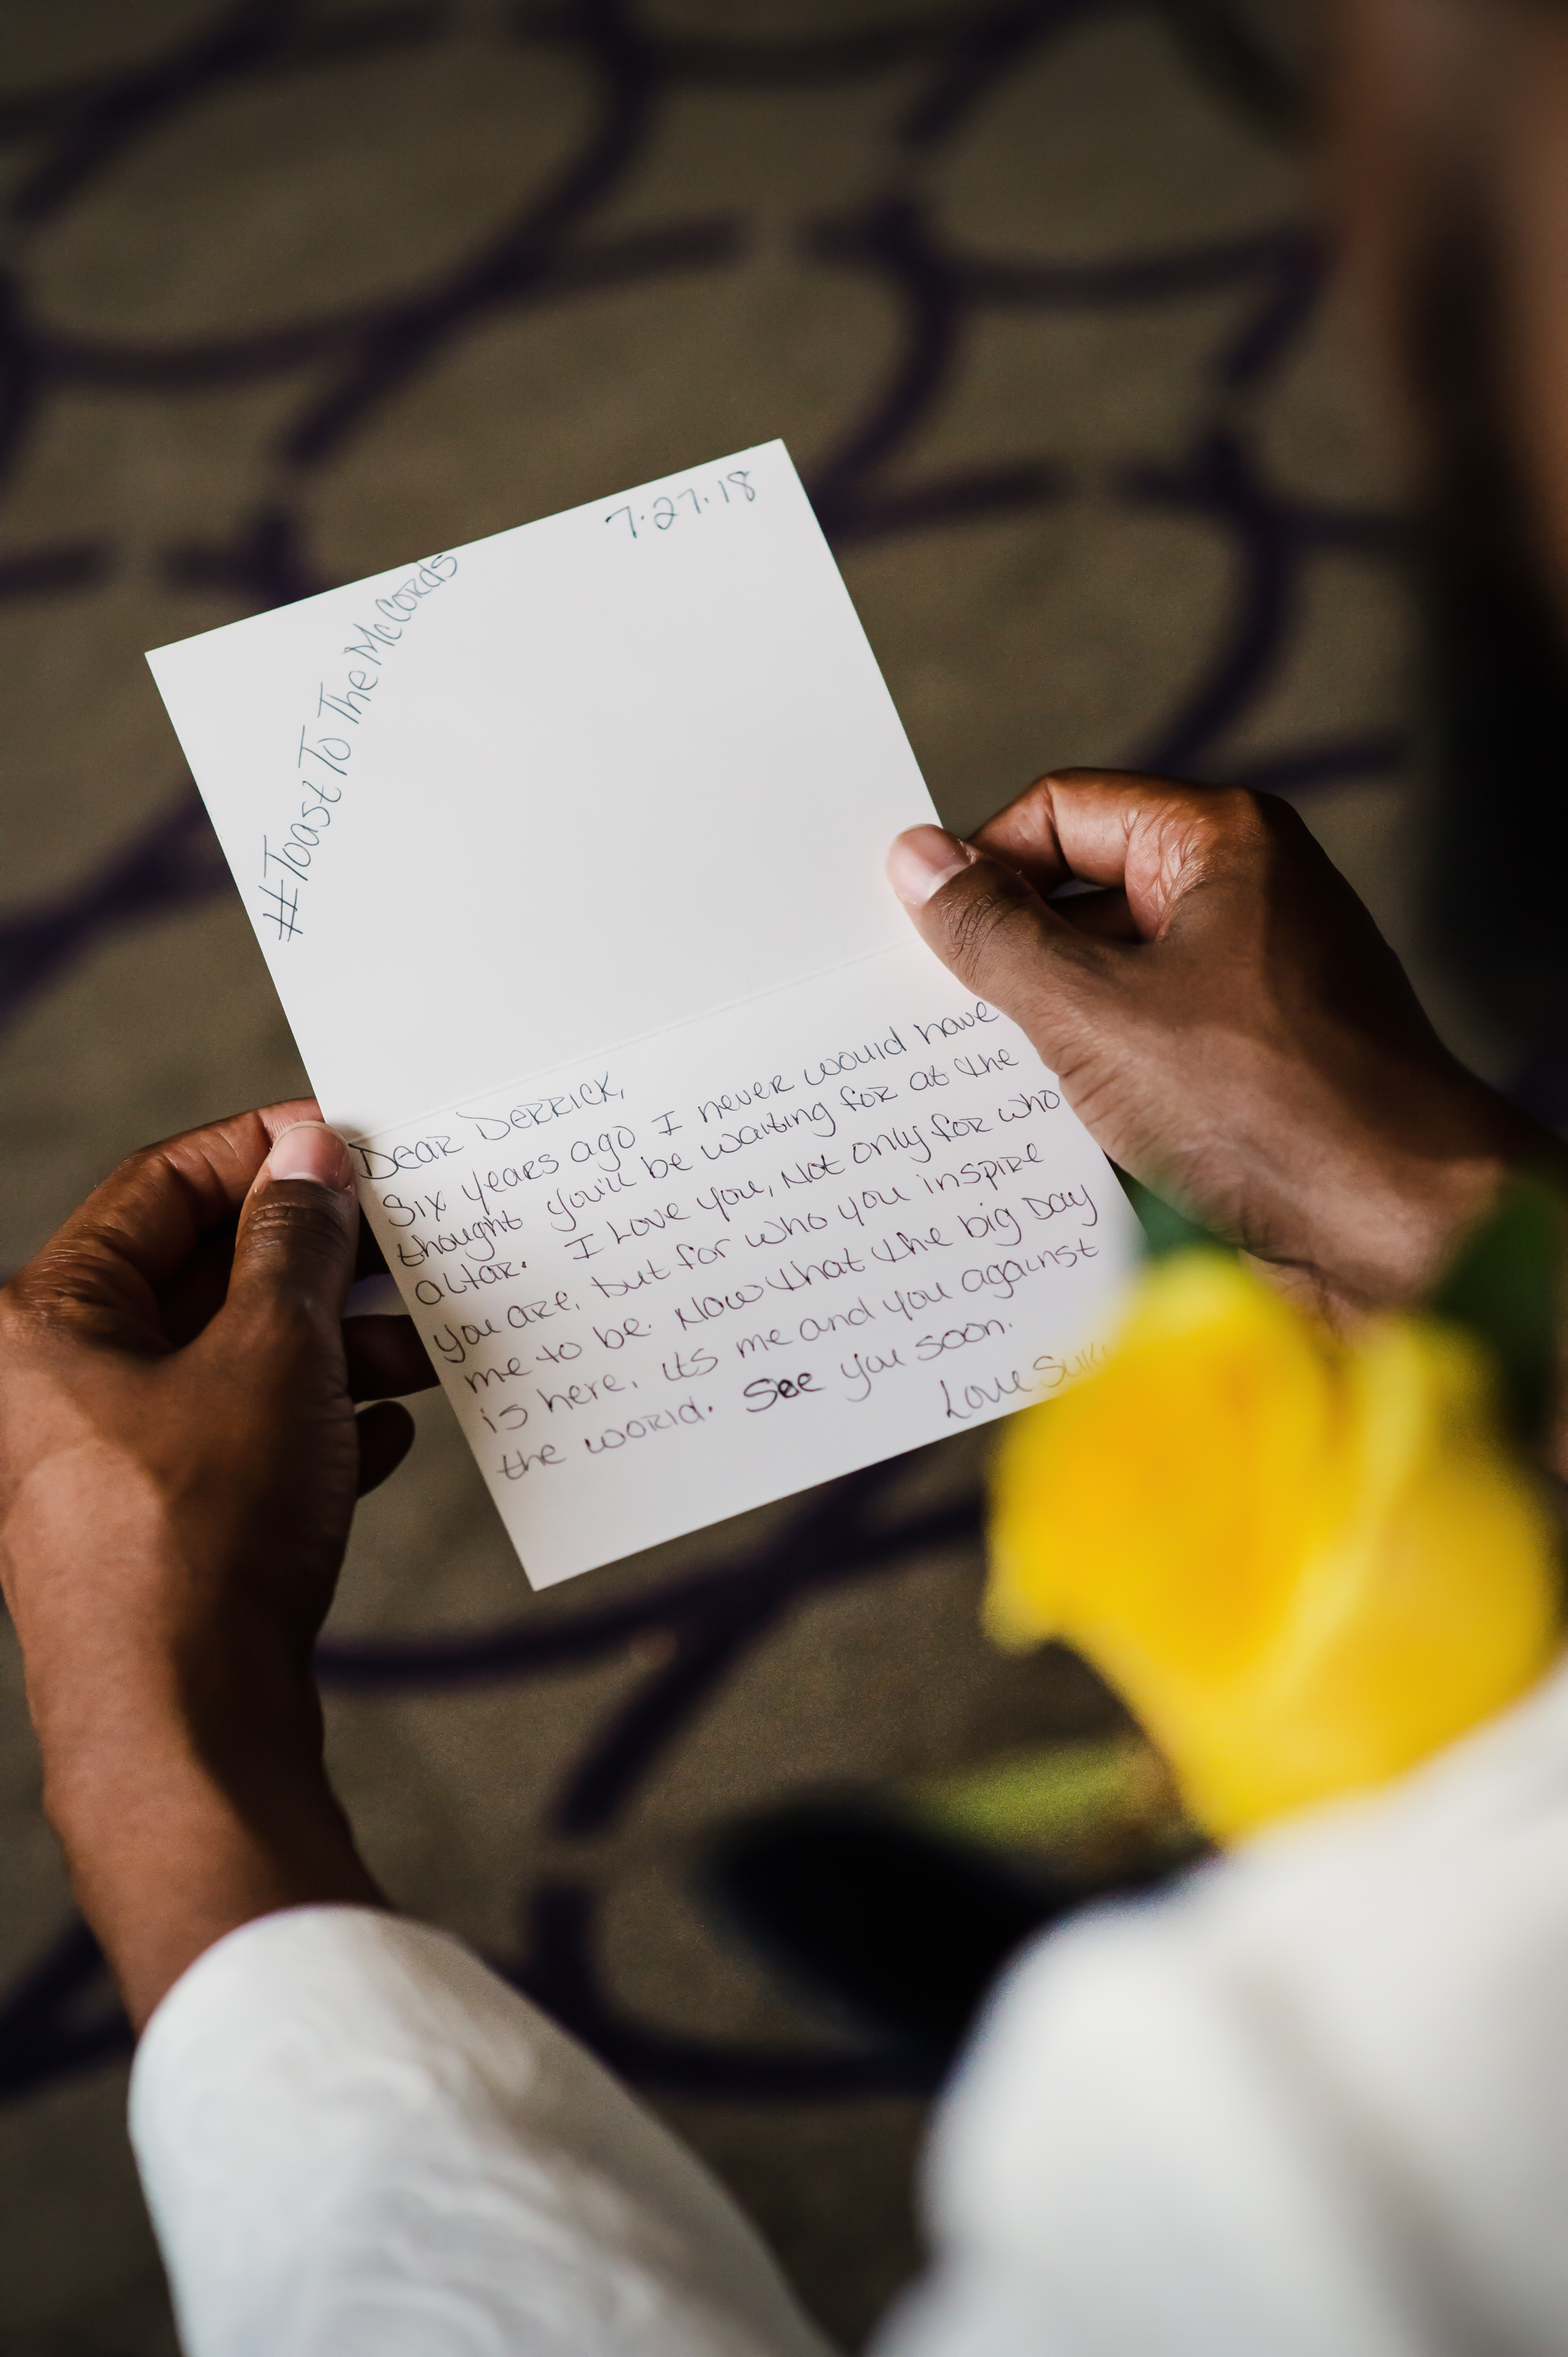 7.27.18
#ToastToTheMcCords
Dear Derrick,
Six years ago I never would have
thought you'll be waiting for at the
altar. I love you, not only for who
you are, but for who you inspire
me to be. Now that the big day
is here, its me and you against
the world. See you soon.
Love